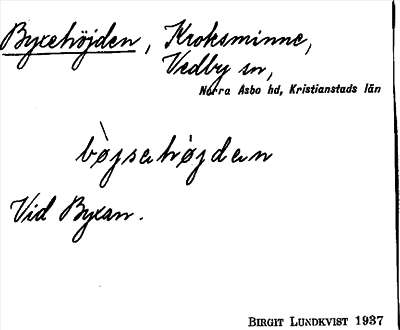 Byxehöjden, Kroksminne,
Vedby sn,
Norra Asbo hd, Kristianstads län
bø̀jsəhøjdən
Vid Byxan.
BIRGIT LUNDKVIST 1937